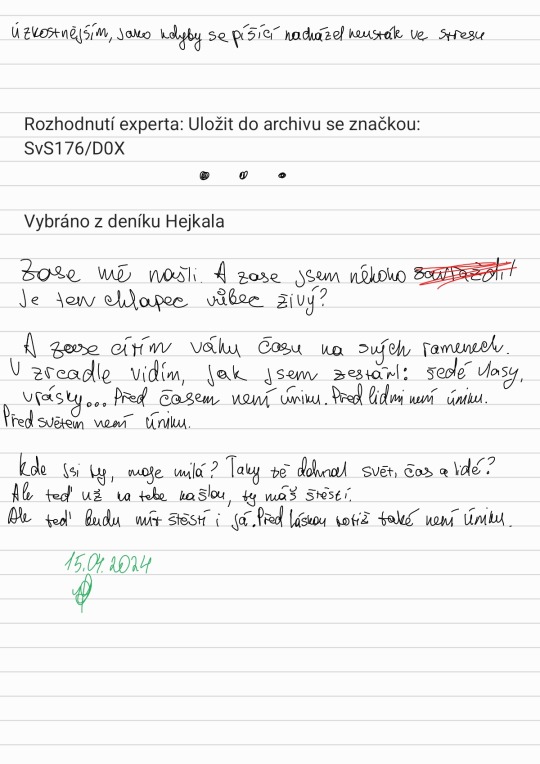 úzkostnějším, jako kdyby se píšící nacházel neustále ve stresu
Rozhodnutí experta: Uložit do archivu se značkou:
SvS176/D0X
Vybráno z deníku Hejkala
Zase mě našli. A zase jsem někoho zavraždil!
Je ten chlapec vůbec živý?
A zase cítím váhu času na svých ramenech.
V zrcadle vidím, jak jsem zestárl: šedé vlasy,
vrásky... Před časem není úniku. Před lidmi není úniku.
Před světem není úniku.
Kde jsi ty, moje milá? Taky tě dohnal svět, čas a lidé?
Ale teď už na tebe kašlou, ty máš štěstí.
Ale teď budu mít štěstí i já. Před láskou totiž také není úniku.
15.04.2024